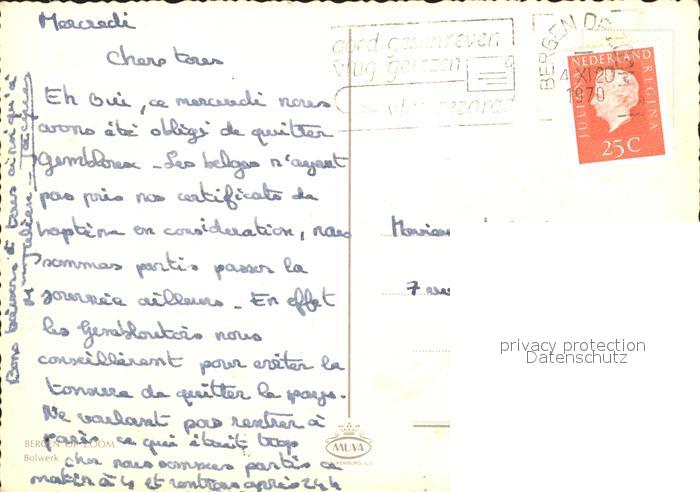 Mercredi
Chers tous
Eh oui, ce mercredi nous
avons été obligé de quitter
Gembloux - Les belges n'ayant
pas pris nos certificats de
baptême en considération, nous
sommes partis passer la
journée ailleurs - En effet
les Gembloutois nous
conseillèrent pour éviter la
tonsure de quitter le pays.
Ne voulant pas rentrer à
paris ce qui était trop
cher nous sommes partis ce
matin à 4 et rentrons après 24 h
Bons baisers à tous ainsi qu'à
BERGEN OP ZOOM
Bolwerk
MUVA
goed geschreven
vlug gelezen
vlot bezorgd
BERGEN OP ZOOM
4 XI 20
1970
NEDERLAND
JULIANA REGINA
25 C
Monsieur
7 rue
privacy protection
Datenschutz